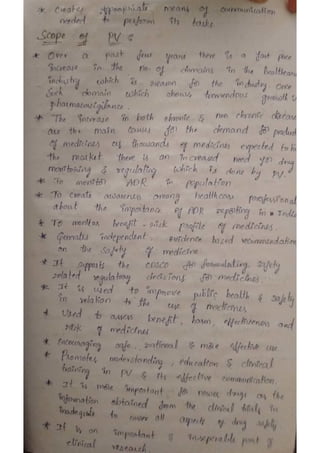 * Creates appropriate means of communication
needed to perform its tasks
Scope of PV :
* Over a past few years there is a fast pace
increase in the no. of domains in the healthcare
industry which is reason for the industry once
such domain which shows tremendous growth is
pharmacovigilance.
* The increase in both chronic & non chronic disease
are the main causes for the demand for product
of medicines as thousands of medicines expected to hit
the market there is an increased need for drug
monitoring & regulating which is done by PV.
* To monitor ADR in population
* To create awareness among healthcare professional
about the importance of ADR reporting in India
* To monitor benefit - risk profile of medicines.
* Generates independent, evidence based recommendation
on the safety of medicine
* It supports the CDSCO for formulating safety
related regulatory decisions for medicines.
* It is used to improve public health & safety
in relation to the use of medicines
* Used to assess benefit, harm, effectiveness and
risk of medicines
* Encouraging safe, rational & more effective use
* Promotes understanding, education & clinical
training in PV & its effective communication.
* It is more important for newer drugs as the
information obtained from the clinical trials in
inadequate to cover all aspects of drug safety
* It is an important & inseperable part of
clinical research